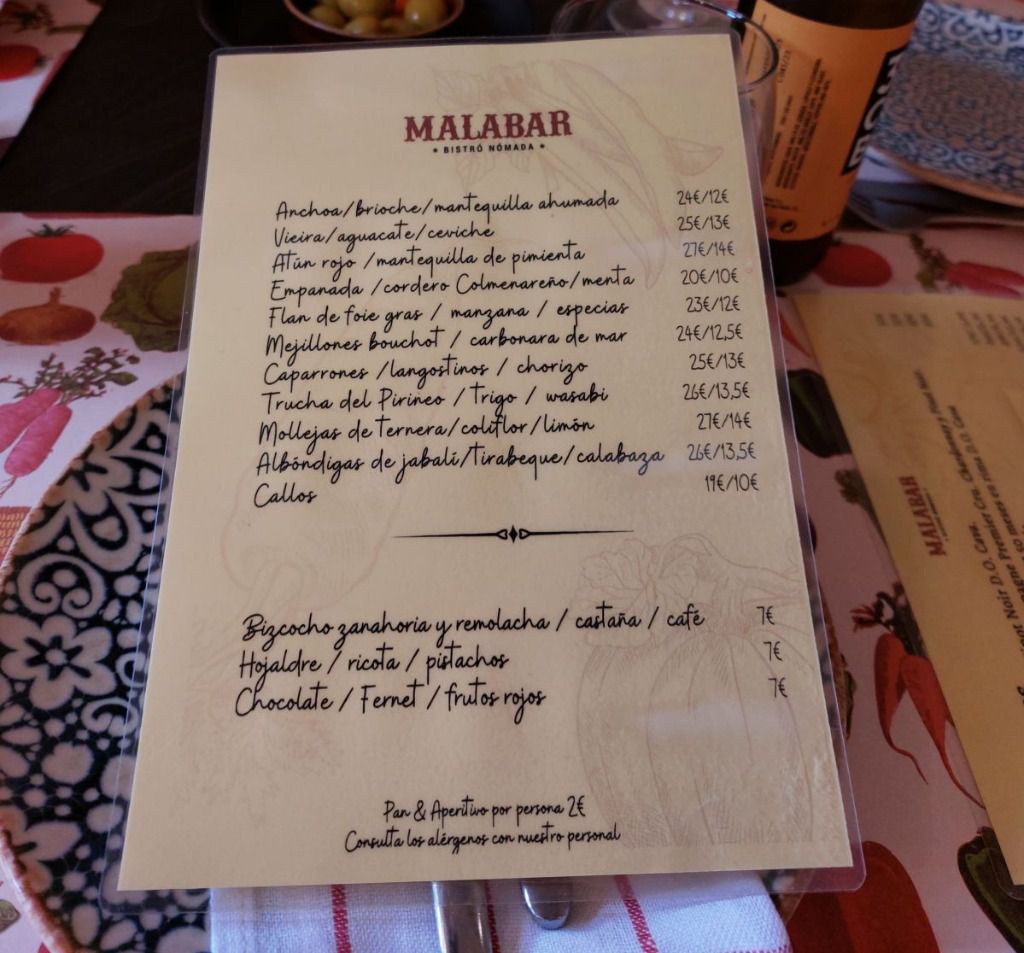 MALABAR
• BISTRÓ NÓMADA •
Anchoa/brioche/mantequilla ahumada 24€/12€
Vieira/aguacate/ceviche 25€/13€
Atún rojo /mantequilla de pimienta 27€/14€
Empanada /cordero Colmenareño/menta 20€/10€
Flan de foie gras / manzana / especias 23€/12€
Mejillones bouchot / carbonara de mar 24€/12,5€
Caparrones /langostinos / chorizo 25€/13€
Trucha del Pirineo / Trigo / wasabi 26€/13,5€
Mollejas de ternera/coliflor/limón 27€/14€
Albóndigas de jabalí/Tirabeque/calabaza 26€/13,5€
Callos 19€/10€
Bizcocho zanahoria y remolacha / castaña / café 7€
Hojaldre / ricota / pistachos 7€
Chocolate / Fernet / frutos rojos 7€
Pan & Aperitivo por persona 2€
Consulta los alérgenos con nuestro personal
MALABAR
Noir D.O. Cava.
Premier Cru. Chardonnay y Pinot Noir.
50 meses en rima D.O. Cava